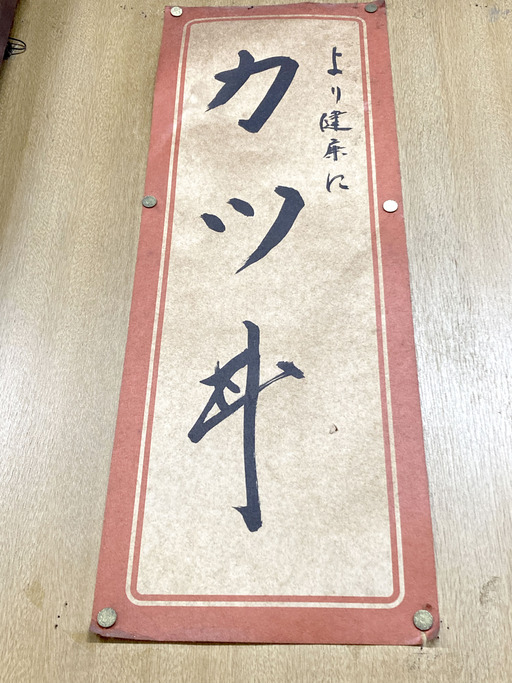 より健康に
カツ丼